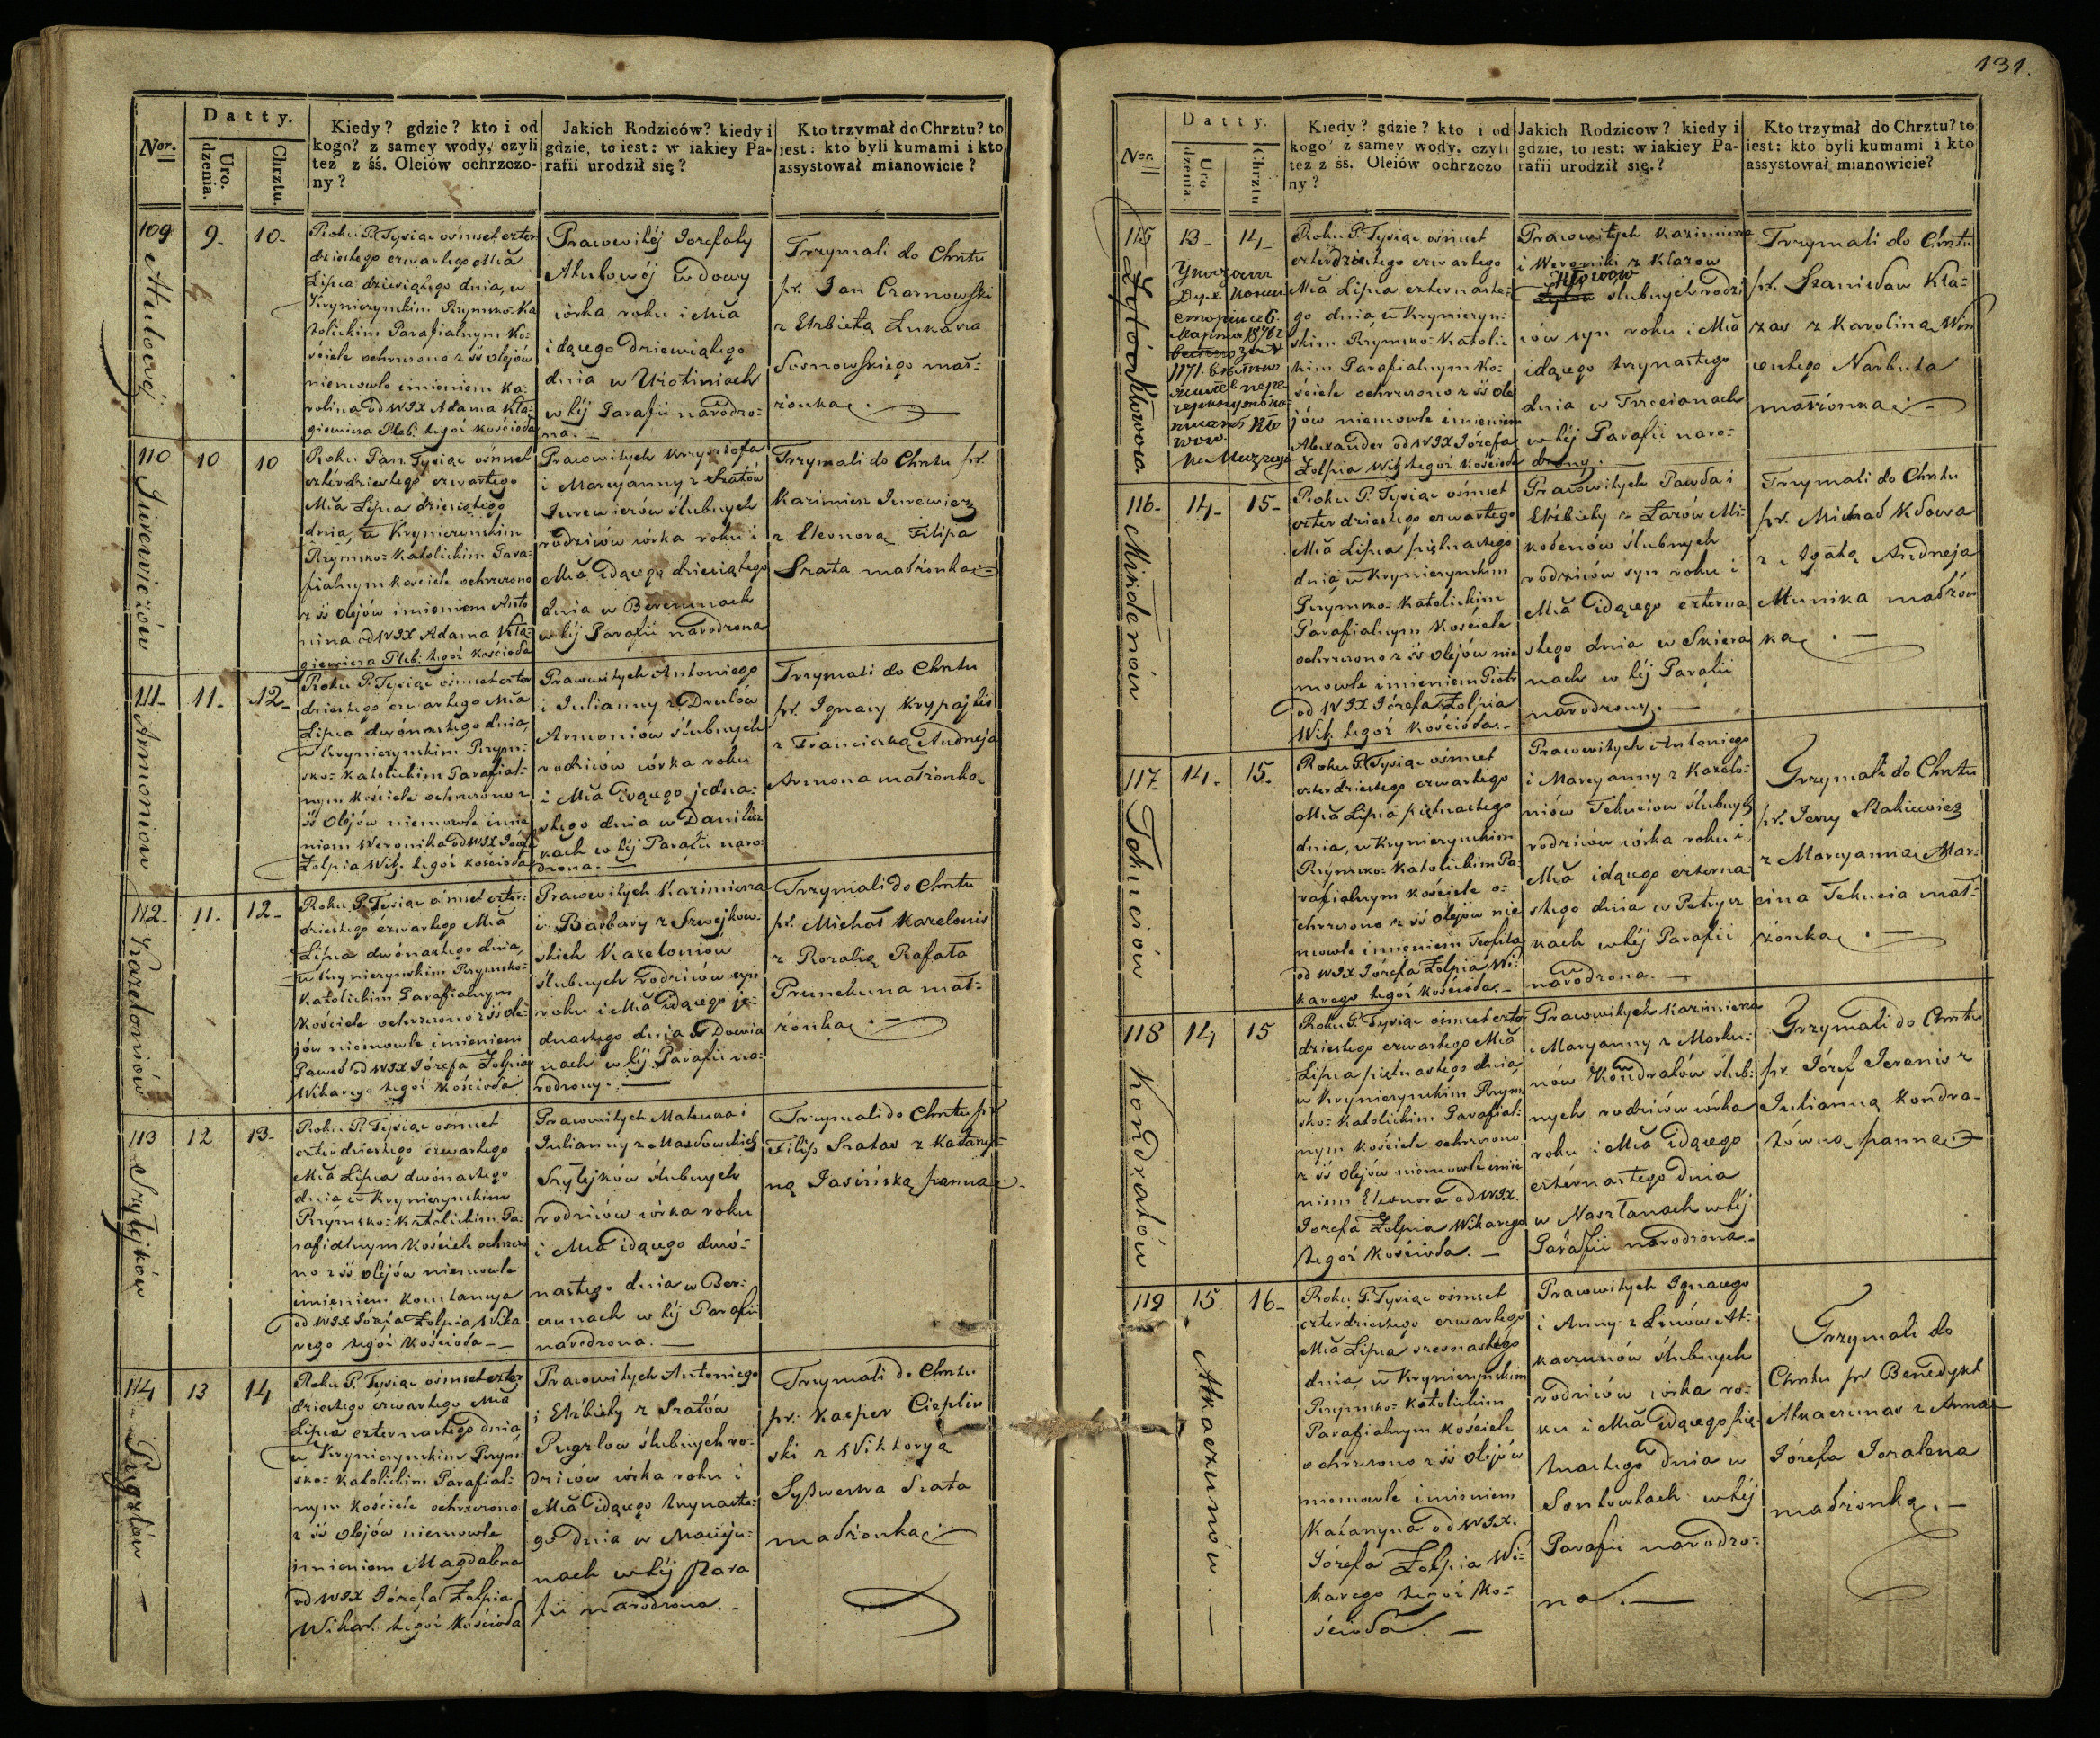 Ner.
Datty.
Uro.
dzenia.
Chrztu.
Kiedy? gdzie? kto i od
kogo? z samey wody, czyli
też z śś. Oleiów ochrzczo-
ny?
Jakich Rodziców? kiedy i
gdzie, to iest: w iakiey Pa-
rafii urodził się?
Kto trzymał do Chrztu? to
iest: kto byli kumami i kto
assystował mianowicie?
109
9-
10-
Roku P. Tysiąc ośmset czter
dziestego czwartego Mca
Lipca dziewiątego dnia, w
Kryniczynskim Rzymsko-Ka
tolickim Parafialnym Ko-
ściele ochrzczono z śś olejów
niemowle imieniem Ka-
rolina od WJX Adama Kła-
giewicza Pleb. tegoż kościoła
Pracowitéj Jozefaty
wdowy
córka roku i Mca
idącego dziewiątego
dnia w
w téj Parafii narodzo-
na.-
Trzymali do Chrztu
pr. Jan Czarnowski
z Elżbietą Łukasza
Sosnowskiego mał-
żonką.
110
Jurewiczów
10
10
Roku Pań. Tysiąc ośmset
czterdziestego czwartego
Mca Lipca dziesiątego
dnia, w Krynicznskim
Rzymsko-Katolickim Para-
fialnym kościele ochrzczono
z śś olejów imieniem Anto
nina od WJX Adama Kła-
giewicza Pleb. tegoż kościoła
Pracowitych Krzysztofa
i Maryanny z Szatów
Jurewiczów ślubnych
rodziców córka roku i
Mca idącego dziesiątego
dnia w
w téj Parafii narodzona
Trzymali do Chrztu pr.
Kazimierz Jurewicz
z Eleonorą Filipa
Szata małżonką
111-
Armoniow
11-
12-
Roku P. Tysiąc ośmset czter
dziestego czwartego Mca
Lipca dwónastego dnia,
w Krynicznskim Rzym-
sko-Katolickim Parafial-
nym kościele ochrzczono z
śś Olejów niemowle imie
niem Weronika od WJX Józefa
Żołpia Wik. tegoż kościoła
Pracowitych Antoniego
i Julianny z Drulów
Armoniów ślubnych
rodziców córka roku
i Mca idącego jedna-
stego dnia w Danilisz
kach w téj Parafii naro-
dzona.-
Trzymali do Chrztu
pr. Ignacy Krypajtis
z Franciszką Andrzeja
Armona małżonką
112-
Kazeloniów
11-
12-
Roku P. Tysiąc ośmset czter-
dziestego czwartego Mca
Lipca dwónastego dnia,
w Krynicznskim Rzymsko-
Katolickim Parafialnym
Kościele ochrzczono z śś ole-
jów niemowle imieniem
Paweł od WJX Józefa Żołpia
Wikarego tegoż Kościoła
Pracowitych Kazimierza
i Barbary z Szwejkow-
skich Kazeloniow
ślubnych rodziców syn
roku i Mca idącego je-
dnastego dnia w
nach w téj Parafii na-
rodzony.-
Trzymali do Chrztu
pr. Michał Kazelonis
z Rozalią Rafała
mał-
żonką.-
113
Szylejków
12
13-
Roku P. Tysiąc ośmset
czterdziestego czwartego
Mca Lipca dwónastego
dnia w Krynicznskim
Rzymsko-Katolickim Pa-
rafialnym Kościele ochrzczo
no z śś olejów niemowle
imieniem Konstancya
od WJX Józefa Żołpia Wika
rego tegoż Kościoła.-
Pracowitych Mateusza i
Julianny z Masłowskich
Szylejków ślubnych
rodziców córka roku
i Mca idącego dwó-
nastego dnia w Ber-
czunach w téj Parafii
narodzona.-
Trzymali do Chrztu pr
Filip Szatas z Katarzy-
ną Jasińską panną.
114
Pugzlów.-
13
14
Roku P. Tysiąc ośmset czter
dziestego czwartego Mca
Lipca czternastego dnia,
w Krynicznskim Rzym-
sko-Katolickim Parafial-
nym Kościele ochrzczono
z śś Olejów niemowle
imieniem Magdalena
od WJX Józefa Żołpia
Wikar. tegoż Kościoła
Pracowitych Antoniego
i Elżbiety z Szatów
Pugzlow ślubnych ro-
dziców córka roku i
Mca idącego trzynaste-
go dnia w Maciju-
nach w téj Para
fii narodzona.-
Trzymali do Chrztu
pr. Kasper Cieplin
ski z Wiktoryą
Sylwestra Szata
małżonką.-
131.
Ner.
Datty.
Uro
dzenia
Chrztu
Kiedy? gdzie? kto i od
kogo? z samey wody, czyli
też z śś. Oleiów ochrzczo
ny?
Jakich Rodzicow? kiedy i
gdzie, to iest: w iakiey Pa-
rafii urodził się.?
Kto trzymał do Chrztu? to
iest: kto byli kumami i kto
assystował mianowicie?
115
13-
14-
Roku P. Tysiąc ośmset
czterdziestego czwartego
Mca Lipca czternaste-
go dnia, w Krynicznskim
Rzymsko-Katolic
kim Parafialnym Ko-
ściele ochrzczono z śś Ole
jów niemowle imieniem
Alexander od WJX Józefa
Żołpia Wik. tegoż Kościoła
Pracowitych Kazimierza
i Weroniki z Kłazow
ślubnych rodzi
ców syn roku i Mca
idącego trzynastego
dnia w Trzcianach
w téj Parafii naro-
dzony.
Trzymali do Chrztu
pr. Stanisław Kła-
zas z Karoliną Win
centego Narbuta
małżonką.-
116-
Mikolenów
14-
15-
Roku P. Tysiąc ośmset
czterdziestego czwartego
Mca Lipca piętnastego
dnia, w Krynicznskim
Rzymsko-Katolickim
Parafialnym Kościele
ochrzczono z śś Olejów nie
mowle imieniem Piotr
od WJX Józefa Żołpia
Wik. tegoż Kościoła.-
Pracowitych Pawła i
Elżbiety z Łazów Mi-
kolenów ślubnych
rodziców syn roku i
Mca idącego czterna
stego dnia w Skiera
nach w téj Parafii
narodzony.-
Trzymali do Chrztu
pr. Michał
z Agatą Andrzeja
Munika małżon
ką.-
117-
Tekuciów
14-
15-
Roku P. Tysiąc ośmset
czterdziestego czwartego
Mca Lipca piętnastego
dnia, w Krynicznskim
Rzymsko-Katolickim Pa-
rafialnym kościele o-
chrzczono z śś Olejów nie
mowle imieniem Teofila
od WJX Józefa Żołpia Wi-
karego tegoż Kościoła.-
Pracowitych Antoniego
i Maryanny z Kazelo-
niów Tekuciow ślubnych
rodziców córka roku i
Mca idącego czterna
stego dnia w Petrysz
kach w téj Parafii
narodzona.-
Trzymali do Chrztu
pr. Jerzy Stakiewicz
z Maryanną Mar-
cina Tekucia mał-
żonką.-
118
Kondratów
14
15
Roku P. Tysiąc ośmset czter
dziestego czwartego Mca
Lipca piętnastego dnia
w Krynicznskim Rzym
sko-Katolickim Parafial-
nym kościele ochrzczono
z śś Olejów niemowle imie
niem Eleonora od WJX.
Jozefa Żołpia Wikarego
tegoż Kościoła.-
Pracowitych Kazimierza
i Maryanny z Marku-
nów Kondratów ślub-
nych rodziców córka
roku i Mca idącego
czternastego dnia
w Naszlanach w téj
Parafii narodzona.
Trzymali do Chrztu
pr. Józef Jeranis z
Julianną Kondra-
tówną panną
119
Atkaczunów.-
15
16-
Roku P. Tysiąc ośmset
czterdziestego czwartego
Mca Lipca szesnastego
dnia, w Krynicznskim
Rzymsko-Katolickim
Parafialnym Kościele
ochrzczono z śś Olejów
niemowle imieniem
Katarzyna od WJX.
Józefa Żołpia Wi-
karego tegoż Ko-
ścioła.-
Pracowitych Ignacego
i Anny z Linów At-
kaczunów ślubnych
rodziców córka ro-
ku i Mca idącego pię-
tnastego dnia w
Sontowtach w téj
Parafii narodzo-
na.-
Trzymali do
Chrztu pr Benedykt
Atkaczunas z Anną
Józefa
małżonką.-